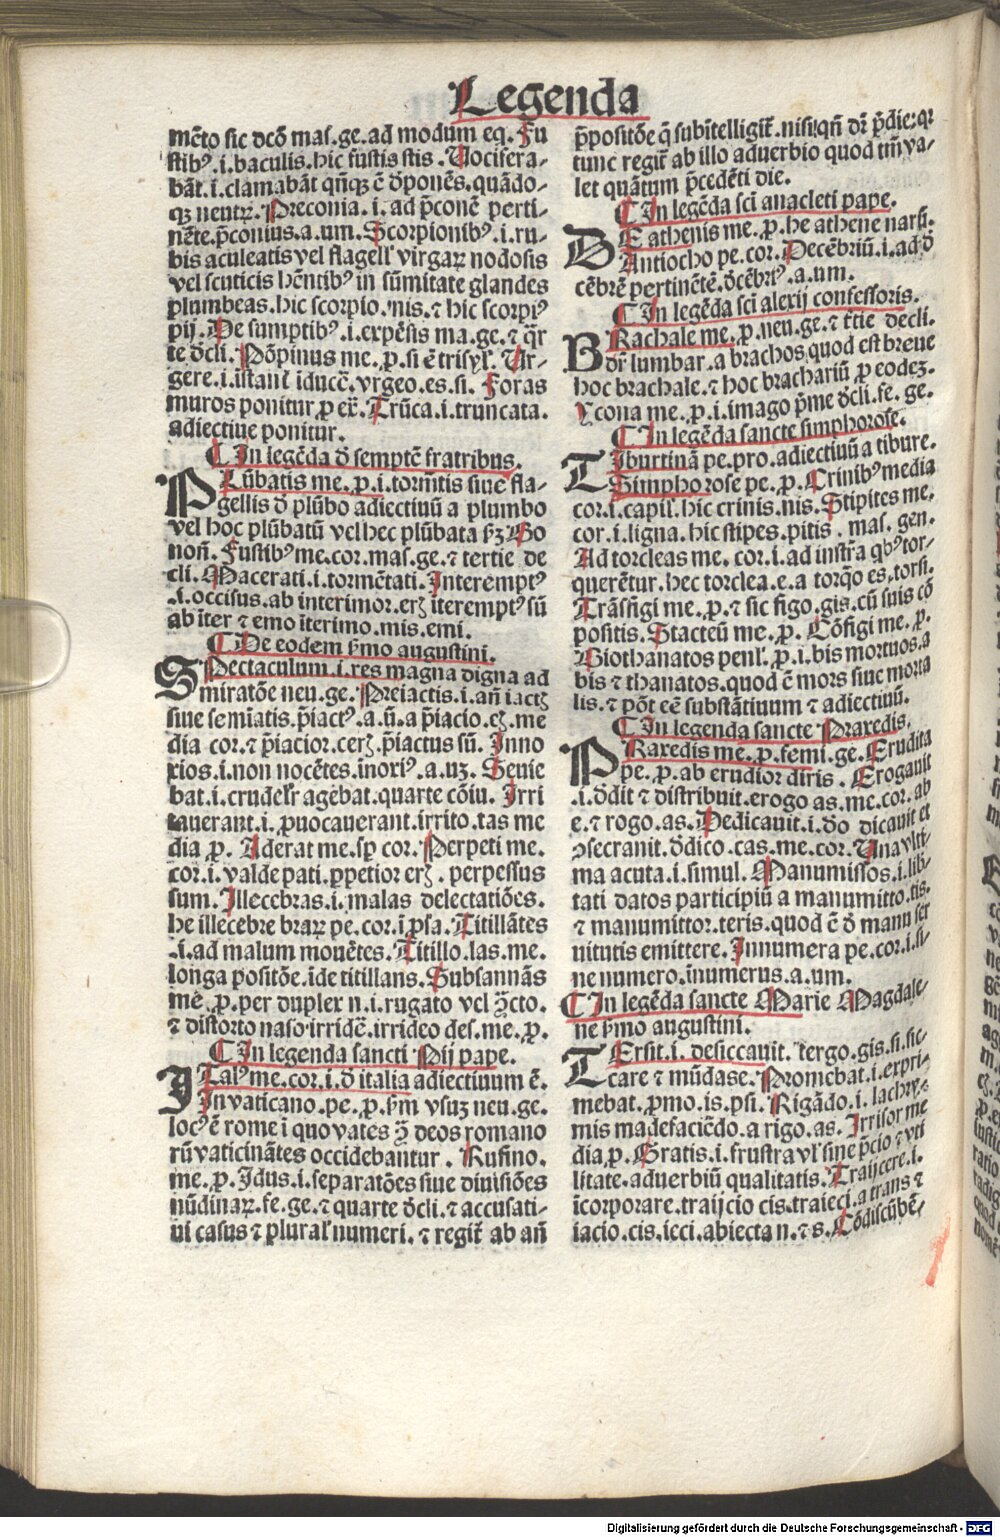 Legenda
mēto sic dcō mas.ge.ad modum eq. Fu
stibꝰ.i.baculis.hic fustis stis. Uocifera-
bāt.i.clamabāt qn̄qꝫ ē d̄ponēs.quādo-
qꝫ neutꝝ. Preconia.i.ad p̄conē perti-
nēte.p̄conius.a.um. Scorpionibꝰ.i.ru-
bis aculeatis vel flagell' virgaꝝ nodosis
vel scuticis hn̄tibꝰ in sūmitate glandes
plumbeas.hic scorpio.nis.⁊ hic scorpiꝰ
pij. De sumptibꝰ.i.expēsis ma.ge.⁊ q̄r
te d̄cli. Pōpinus me.p.si ē trisyl'. Ur-
gere.i.istant' iducē.vrgeo.es.si. Foras
muros ponitur ꝑ ex̄. Trūca.i.truncata.
adiectiue ponitur.
¶ In legēda d̄ septē fratribus.
PLūbatis me.p.i.tormētis siue fla-
gellis d̄ plūbo adiectiuū a plumbo
vel hoc plūbatū vel hec plūbata ẜꝫ Bo
non̄. Fustibꝰ me.cor.mas.ge.⁊ tertie de
cli. Macerati.i.tormētati. Interemptꝰ
.i.occisus.ab interimor.erꝭ iteremptꝰ sū
ab iter ⁊ emo īterimo.mis.emi.
¶ De eodem ẜmo augustini.
SPectaculum.i.res magna digna ad
miratōe neu.ge. Preiactis.i.an̄ iactꝭ
siue semīatis.p̄iactꝰ.a.ū.a p̄iacio.cꝭ.me
dia cor.⁊ p̄iacior.cerꝭ.p̄iactus sū. Inno
xios.i.non nocētes.inoxiꝰ.a.uꝫ. Seuie
bat.i.crudelr̄ agebat.quarte cōiu. Irri
tauerant.i.ꝓuocauerant.irrito.tas me
dia ꝓ. Aderat me.sꝑ cor. Perpeti me.
cor.i.valde pati.ꝑpetior erꝭ.perpessus
sum. Illecebras.i.malas delectatiōes.
he illecebre braꝝ pe.cor.i p̄sa. Titillātes
.i.ad malum mouētes. Titillo.las.me.
longa positōe.īde titillans. Subsannās
me.ꝓ.per dupler n.i.rugato vel ꝯ̄cto.
⁊ distorto naso irridē.irrideo des.me.ꝓ.
¶ In legenda sancti Pij pape.
ITalꝰ me.cor.i.d̄ italia adiectiuum ē.
In vaticano.pe.ꝓ.ẜm vsuꝫ neu.ge.
locꝰ ē rome ī quo vates ꝯ̄ deos romano
rū vaticinātes occidebantur. Rufino.
me.ꝓ. Idus.i.separatōes siue diuisiōes
nūdinaꝝ.fe.ge.⁊ quarte d̄cli.⁊ accusati-
ui casus ⁊ plural' numeri.⁊ regit̄ ab an̄
p̄positōe q̄ subītelligit̄.nisi qn̄ dr̄ p̄die:qꝛ
tunc regit̄ ab illo aduerbio quod tm̄ va-
let quātum p̄cedēti die.
¶ In legēda sci anacleti pape.
DE athenis me.ꝓ.he athene narū.
Antiocho pe.cor. Decēbriū.i.ad d̄
cēbrē pertinētē.d̄cēbriꝰ.a.um.
¶ In legēda sci alexij confessoris.
BRachale me.ꝓ.neu.ge.⁊ t̄tie decli.
dr̄ lumbar.a brachos quod est breue
hoc brachale.⁊ hoc brachariū ꝓ eodeꝫ.
Ycona me.ꝓ.i.imago p̄me d̄cli.fe.ge.
¶ In legēda sancte simphorose.
TIburtinā pe.pro.adiectiuū a tibure.
Simphorose pe.ꝓ. Crinibꝰ media
cor.i.capil'.hic crinis.nis. Stipites me.
cor.i.ligna.hic stipes.pitis.mas.gen.
Ad torcleas me.cor.i.ad instr̄a qbꝰ tor-
querētur.hec torclea.e.a torq̄o es.torsi.
Trāsfigi me.ꝓ.⁊ sic figo.gis.cū suis cō
positis. Stacteū me.ꝓ. Cōfigi me.ꝓ.
Biothanatos penl'.ꝓ.i.bis mortuos.a
bis ⁊ thanatos.quod ē mors siue morta
lis.⁊ pōt eē substātiuum ⁊ adiectiuū.
¶ In legenda sancte Praxedis.
PRaxedis me.ꝓ.femi.ge. Erudita
pe.ꝓ.ab erudior diris. Erogauit
.i.d̄dit ⁊ distribuit.erogo as.me.cor.ab
e.⁊ rogo.as. Dedicauit.i.d̄o dicauit et
ꝯsecrauit.d̄dico.cas.me.cor. Una vlti-
ma acuta.i.simul. Manumissos.i.lib-
tati datos participiū a manumitto.tis.
⁊ manumittor.teris.quod ē d̄ manu ser
uitutis emittere. Innumera pe.cor.i.si-
ne numero.īnumerus.a.um.
¶ In legēda sancte Marie Magdale-
ne ẜmo augustini.
TErsit.i.desiccauit.tergo.gis.si.sic-
care ⁊ mūdase. Promebat.i.expri-
mebat.ꝓmo.is.psi. Rigādo.i.lachry-
mis madefaciēdo.a rigo.as. Irrisor me
dia.ꝓ. Gratis.i.frustra vl' sine p̄cio ⁊ vti
litate.aduerbiū qualitatis. Traijcere.i.
īcorporare.traijcio cis.traieci.a trans ⁊
iacio.cis.ieci.abiecta n.⁊ s. Cōdiscūbē-
Digitalisierung gefördert durch die Deutsche Forschungsgemeinschaft - DFG